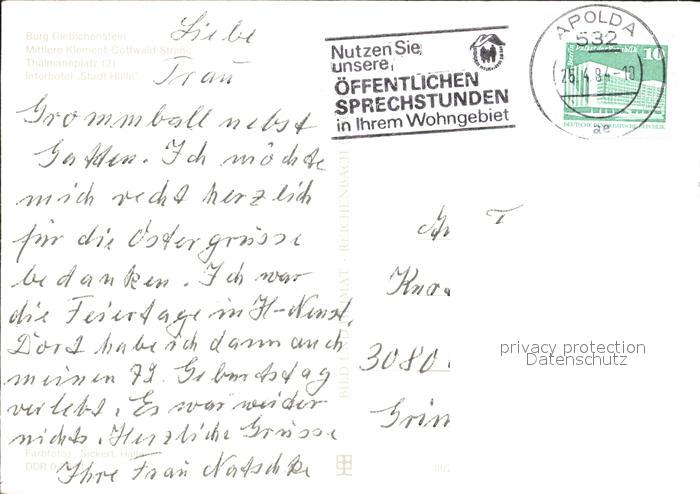 Burg Giebichenstein
Mittlere Klement-Gottwald-Straße
Thälmannplatz (2)
Interhotel „Stadt Halle"
Liebe
Frau
Grommball nebst
Gatten. Ich möchte
mich recht herzlich
für die Ostergrüsse
bedanken. Ich war
die Feiertage in H-Neust.
Dort habe ich dann auch
meinen 79. Geburtstag
verlebt. Es war weider
nichts. Herzliche Grüsse
Ihre Frau Natschke
Farbfotos: Sickert, Halle
DDR
BILD UND HEIMAT · REICHENBACH
Nutzen Sie
unsere
ÖFFENTLICHEN
SPRECHSTUNDEN
in Ihrem Wohngebiet
APOLDA
532
25.4.84-10
ae
10
DEUTSCHE DEMOKRATISCHE REPUBLIK
3080
privacy protection
Datenschutz